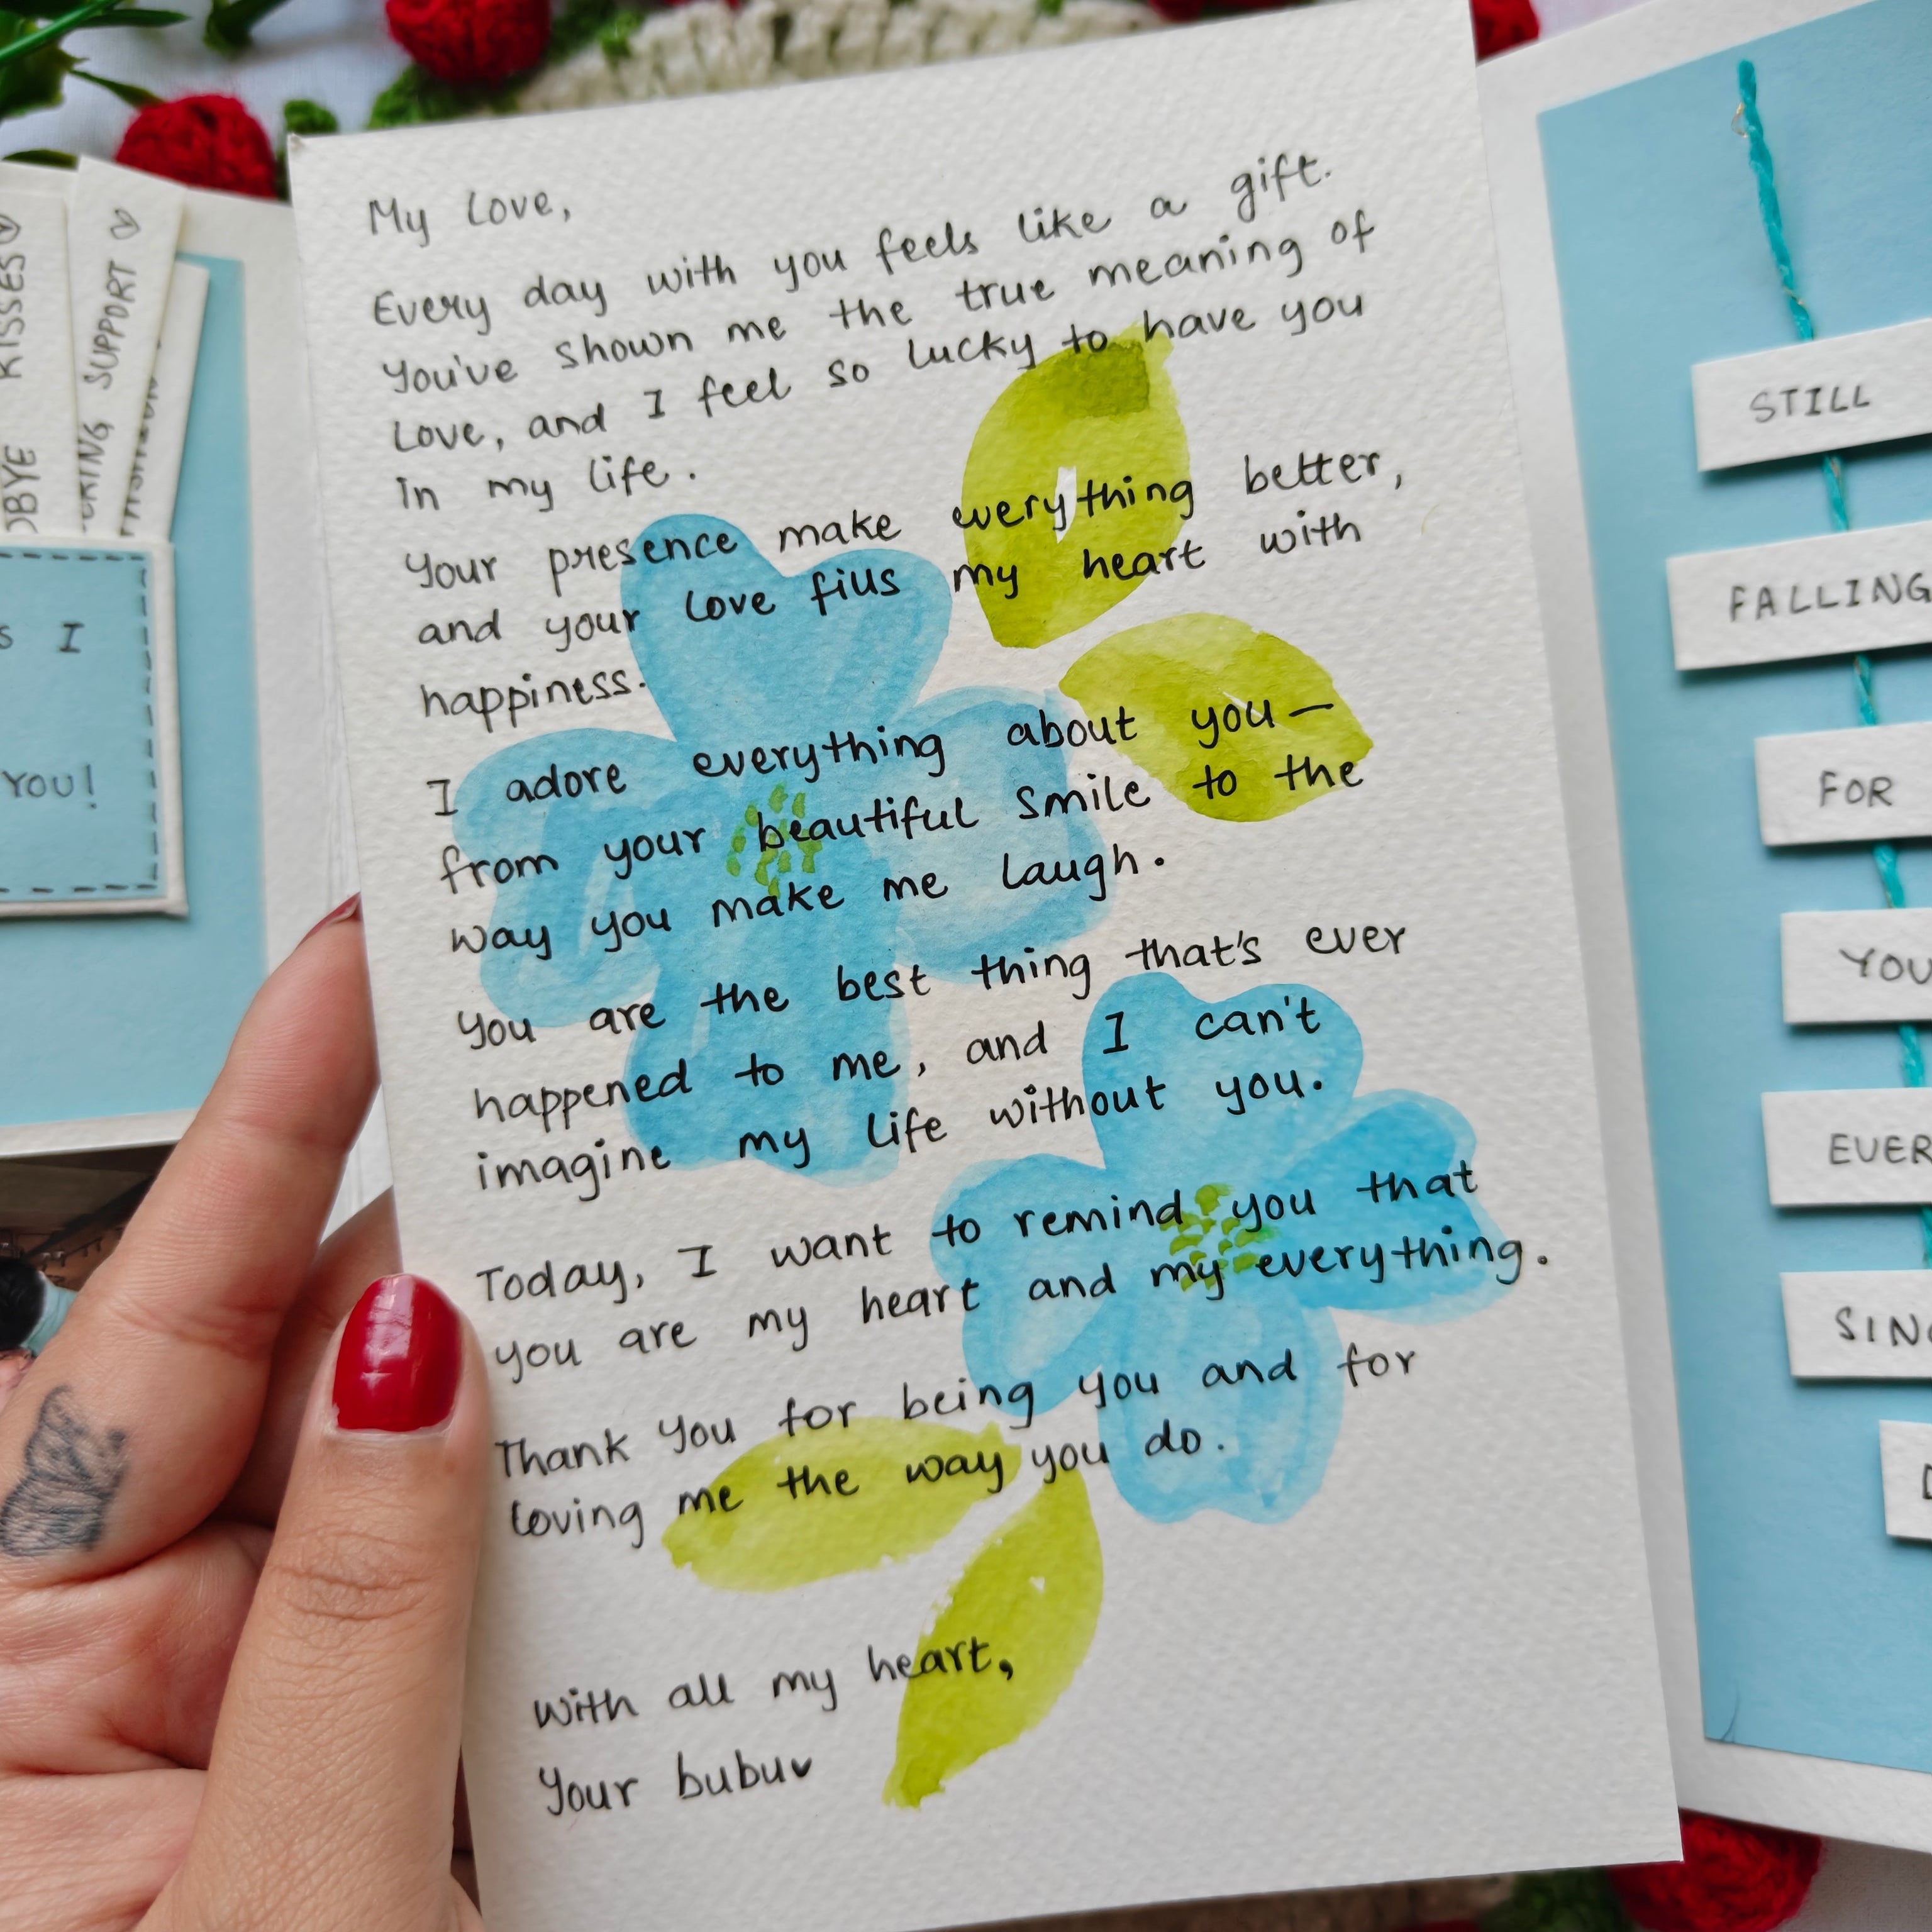 My Love,
Every day with you feels like a gift.
You've shown me the true meaning of
Love, and I feel so lucky to have you
in my life.
Your presence make everything better,
and your love fills my heart with
happiness.
I adore everything about you—
from your beautiful smile to the
way you make me laugh.
You are the best thing that's ever
happened to me, and I can't
imagine my life without you.
Today, I want to remind you that
you are my heart and my everything.
Thank you for being you and for
loving me the way you do.
With all my heart,
Your bubu♥
KISSES
SUPPORT
I
YOU!
STILL
FALLING
FOR